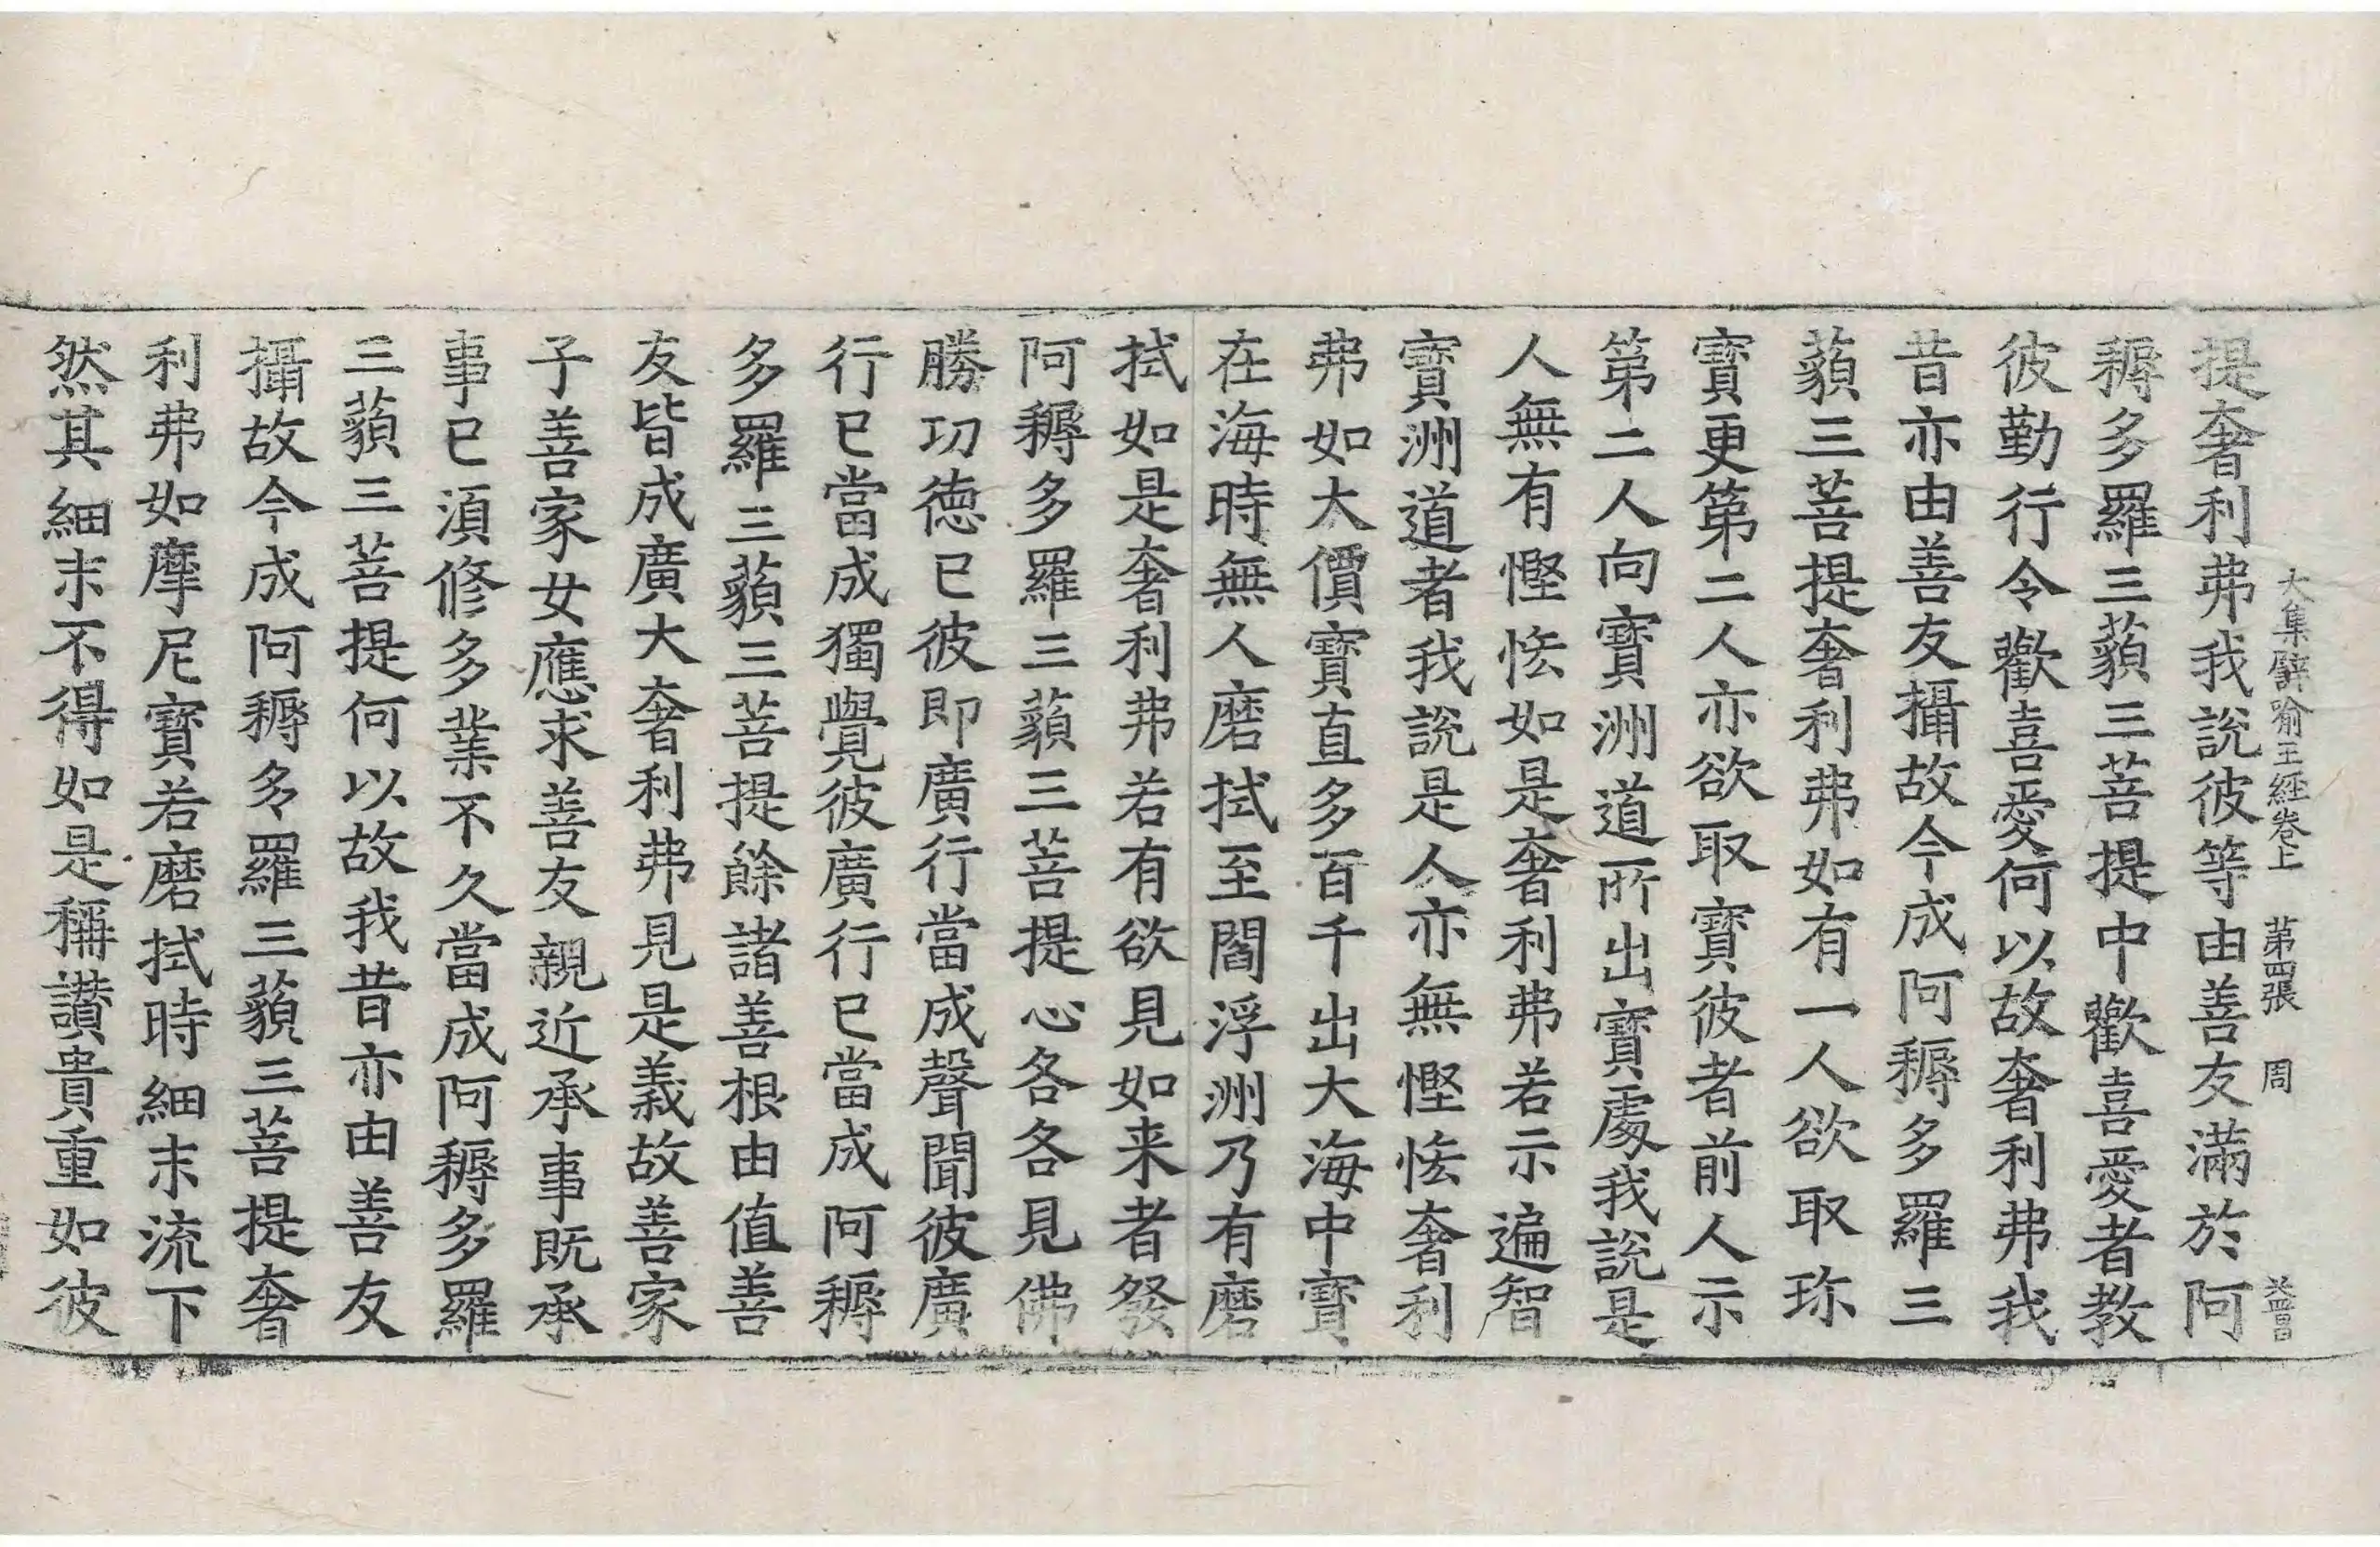 大集譬喻王經卷上 第四張 周
提奢利弗我說彼等由善友滿於阿
耨多羅三藐三菩提中歡喜愛者教
彼勤行令歡喜愛何以故奢利弗我
昔亦由善友攝故今成阿耨多羅三
藐三菩提奢利弗如有一人欲取珎
寶更第二人亦欲取寶彼者前人示
第二人向寶洲道所出寶處我說是
人無有慳悋如是奢利弗若示遍智
寶洲道者我說是人亦無慳悋奢利
弗如大價寶直多百千出大海中寶
在海時無人磨拭至閻浮洲乃有磨
拭如是奢利弗若有欲見如来者發
阿耨多羅三藐三菩提心各各見佛
勝功德已彼即廣行當成聲聞彼廣
行已當成獨覺彼廣行已當成阿耨
多羅三藐三菩提餘諸善根由值善
友皆成廣大奢利弗見是義故善家
子善家女應求善友親近承事既承
事已湏修多業不久當成阿耨多羅
三藐三菩提何以故我昔亦由善友
攝故今成阿耨多羅三藐三菩提奢
利弗如摩尼寶若磨拭時細末流下
然其細末不得如是稱讚貴重如彼